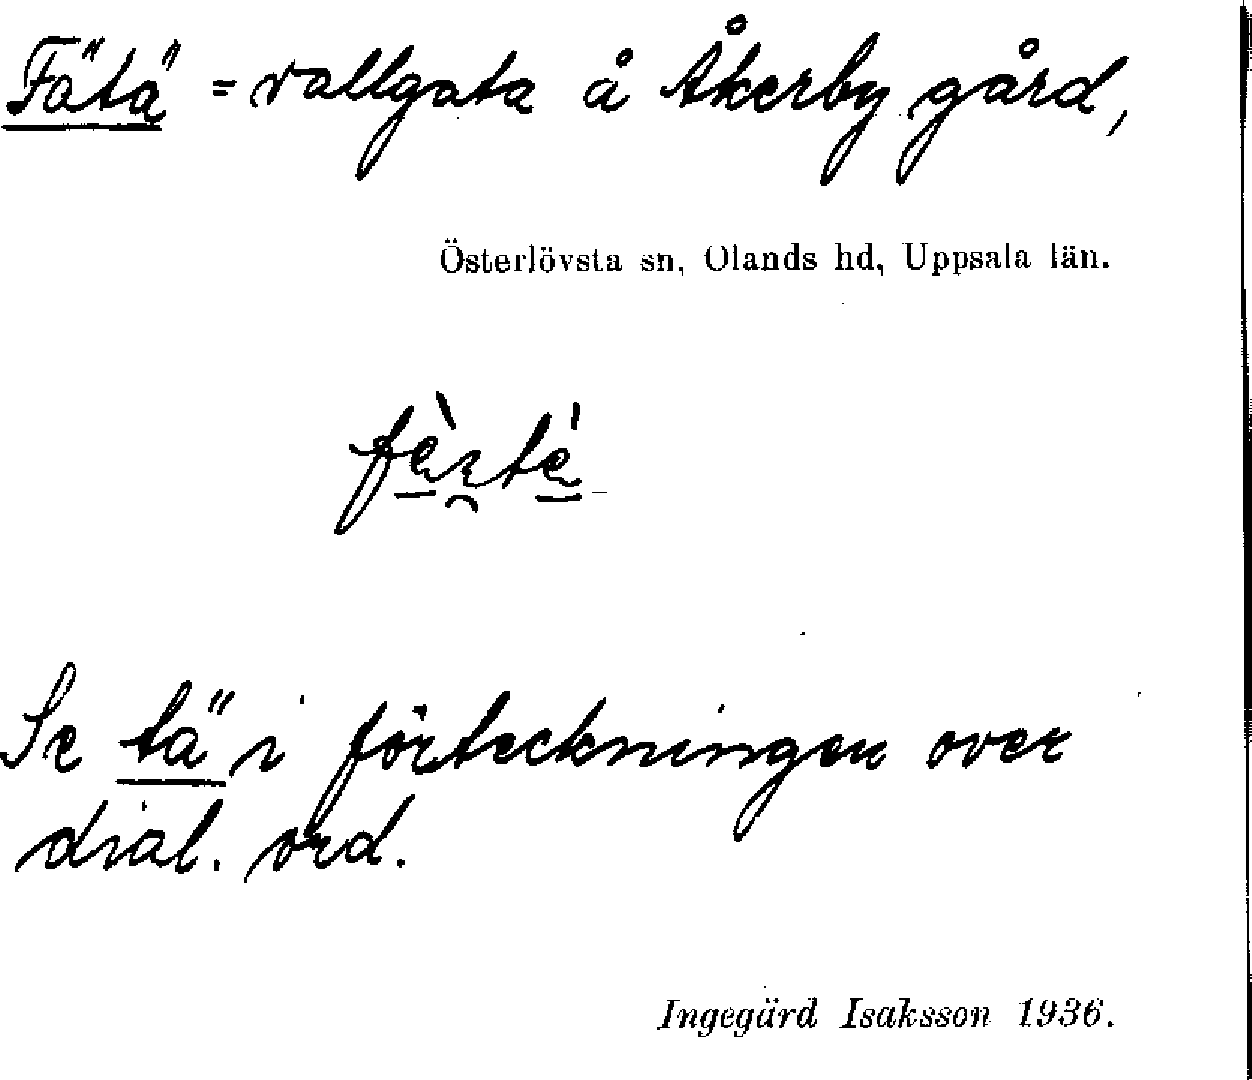 Fätä = vallgata å Åkerby gård,
Österlövsta sn, Olands hd, Uppsala län.
Se tä i förteckningen över
dial. ord.
Ingegärd Isaksson 1936.